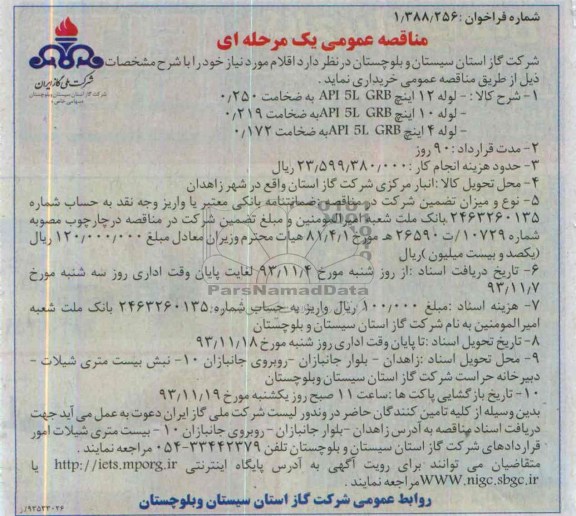 شماره فراخوان :۱/۳۸۸/۲۵۶
مناقصه عمومی یک مرحله ای
شرکت ملی گاز ایران
شرکت گاز استان سیستان و بلوچستان
(سهامی خاص)
شرکت گاز استان سیستان و بلوچستان در نظر دارد اقلام مورد نیاز خود را با شرح مشخصات
ذیل از طریق مناقصه عمومی خریداری نماید .
۱- شرح کالا : - لوله ۱۲ اینچ API 5L GRB به ضخامت ۰/۲۵۰
- لوله ۱۰ اینچ API 5L GRB به ضخامت ۰/۲۱۹
- لوله ۴ اینچ API 5L GRB به ضخامت ۰/۱۷۲
۲- مدت قرارداد :۹۰ روز
۳- حدود هزینه انجام کار :۲۳/۵۹۹/۳۸۰/۰۰۰ ریال
۴- محل تحویل کالا: انبار مرکزی شرکت گاز استان واقع در شهر زاهدان
۵- نوع و میزان تضمین شرکت در مناقصه :ضمانتنامه بانکی معتبر یا واریز وجه نقد به حساب شماره
۲۴۶۳۲۶۰۱۳۵ بانک ملت شعبه امیرالمومنین و مبلغ تضمین شرکت در مناقصه در چارچوب مصوبه
شماره ۱۰۷۲۹/ت ۲۶۵۹۰ هـ مورخ ۸۱/۴/۱ هیات محترم وزیران معادل مبلغ ۱۲۰/۰۰۰/۰۰۰ ریال
(یکصد و بیست میلیون )ریال
۶- تاریخ دریافت اسناد :از روز شنبه مورخ ۹۳/۱۱/۴ لغایت پایان وقت اداری روز سه شنبه مورخ
۹۳/۱۱/۷
ParsNamadData
۷- هزینه اسناد :مبلغ ۱۰۰/۰۰۰ ریال واریز به حساب شماره:۲۴۶۳۲۶۰۱۳۵ بانک ملت شعبه
امیرالمومنین به نام شرکت گاز استان سیستان و بلوچستان
۸- تاریخ تحویل اسناد :تا پایان وقت اداری روز شنبه مورخ ۹۳/۱۱/۱۸
۹- محل تحویل اسناد :زاهدان - بلوار جانبازان -روبروی جانبازان ۱۰- نبش بیست متری شیلات -
دبیرخانه حراست شرکت گاز استان سیستان وبلوچستان
۱۰- تاریخ بازگشایی پاکت ها :ساعت ۱۱ صبح روز یکشنبه مورخ ۹۳/۱۱/۱۹
بدین وسیله از کلیه تامین کنندگان حاضر در وندور لیست شرکت ملی گاز ایران دعوت به عمل می آید جهت
دریافت اسناد مناقصه به آدرس زاهدان -بلوار جانبازان - روبروی جانبازان ۱۰ - بیست متری شیلات امور
قراردادهای شرکت گاز استان سیستان و بلوچستان تلفن ۳۳۴۴۲۳۷۹-۰۵۴ مراجعه نمایند .
متقاضیان می توانند برای رویت آگهی به آدرس پایگاه اینترنتی http://iets.mporg.ir یا
WWW.nigc.sbgc.ir مراجعه نمایند .
روابط عمومی شرکت گاز استان سیستان وبلوچستان